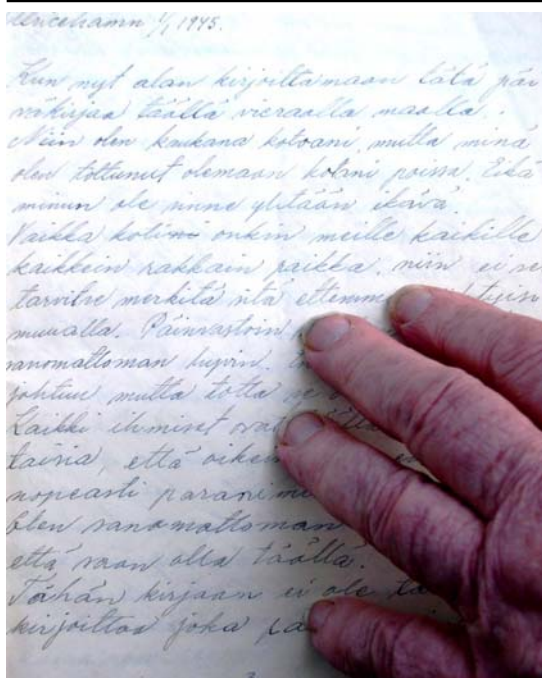 Ulricehamn 1/1 1945.
Kun nyt alan kirjoittamaan tätä päi
väkirjaa täällä vieraalla maalla.
Niin olen kaukana kotoani, mutta minä
olen tottunut olemaan kotoani poissa. Eikä
minun ole sinne yhtään ikävä.
Vaikka kotimi onkin meille kaikille
kaikkein rakkain paikka, niin ei se
tarvitse merkitä sitä ettemme
muualla. Päinvastoin
sanomattoman hyvin.
johtuu mutta totta se
Kaikki ihmiset ovat
laisia, että oikein
nopeasti paranimi
Olen sanomattoman
että saan olla täällä.
Tähän kirjaan ei ole
kirjoittaa joka